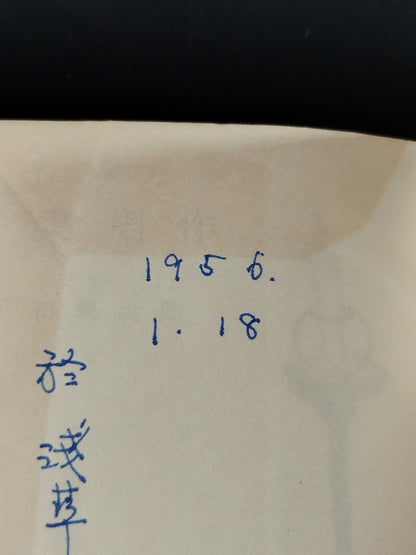 1956.
1.18
於 浅草